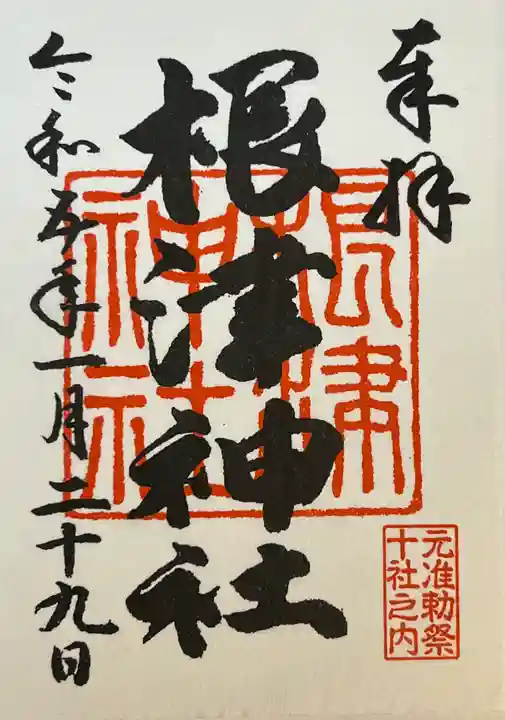 奉拝
根津神社
令和五年一月二十九日
根津
神社
元准勅祭
十社之内